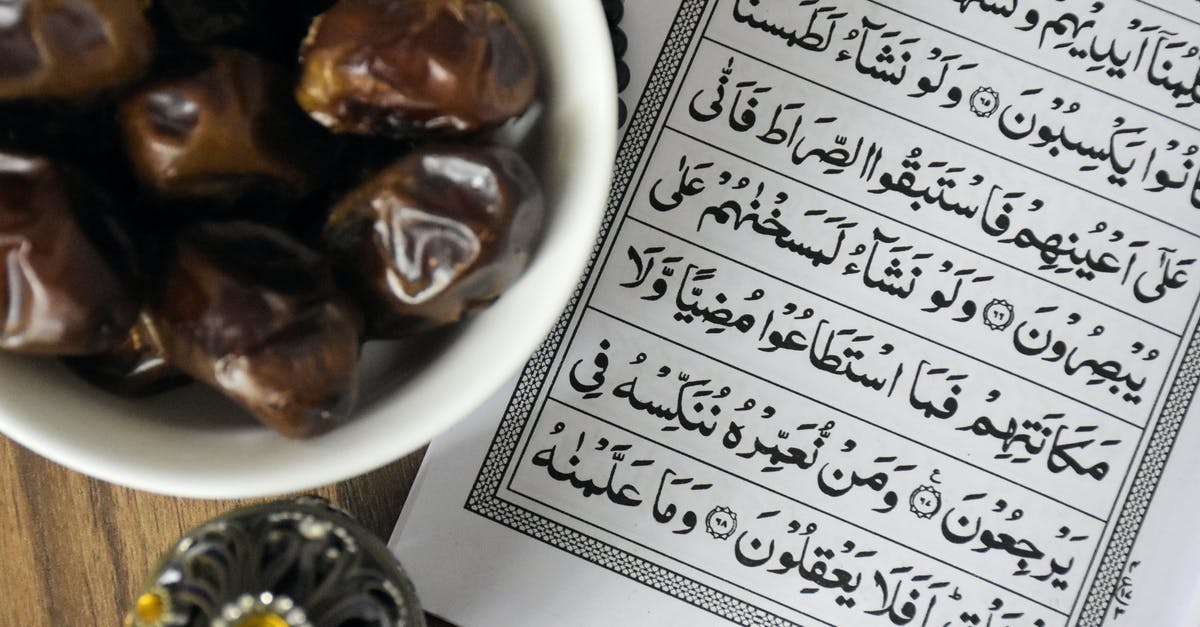 لِّمُنَاۤ اَيْدِيْهِمْ
انُوْا يَكْسِبُوْنَ ۝٦٥ وَلَوْ نَشَآءُ لَطَمَسْنَا
عَلٰۤى اَعْيُنِهِمْ فَاسْتَبَقُوا الصِّرَاطَ فَاَنّٰى
يُبْصِرُوْنَ ۝٦٦ وَلَوْ نَشَآءُ لَمَسَخْنٰهُمْ عَلٰى
مَكَانَتِهِمْ فَمَا اسْتَطَاعُوْا مُضِيًّا وَّلَا
يَرْجِعُوْنَ ۝٦٧ وَمَنْ نُّعَمِّرْهُ نُنَكِّسْهُ فِى
اَفَلَا يَعْقِلُوْنَ ۝٦٨ وَمَا عَلَّمْنٰهُ